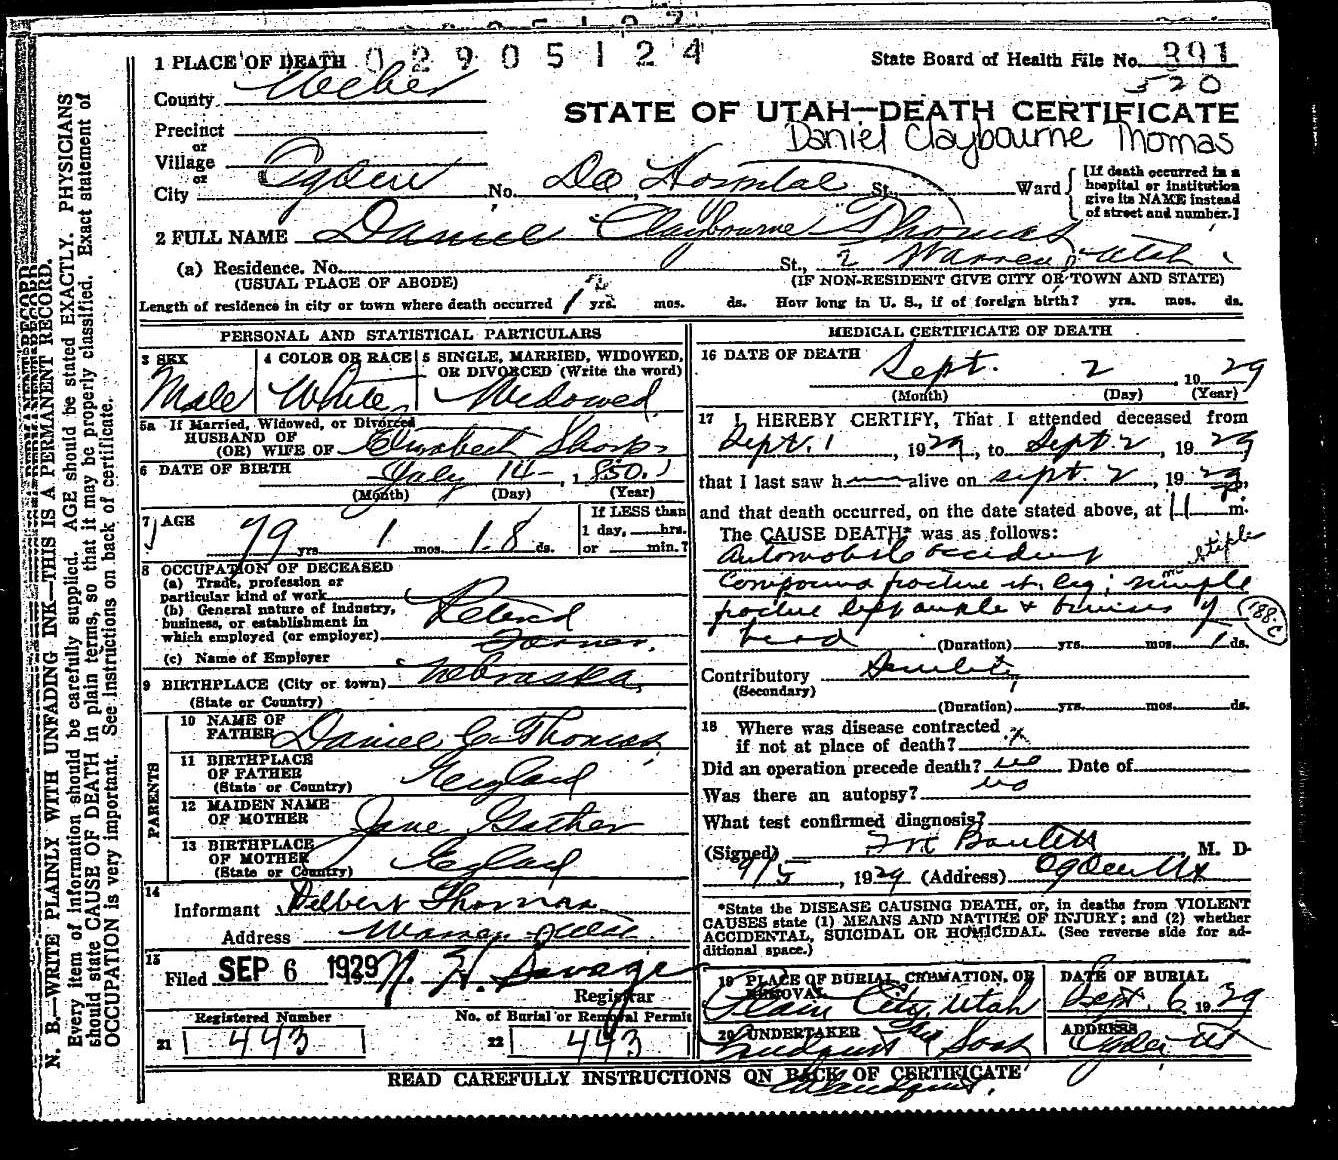 02905124
1 PLACE OF DEATH
State Board of Health File No. 391
520
County Weber
STATE OF UTAH—DEATH CERTIFICATE
Daniel Claybourne Thomas
Precinct
or
Village
or
City Ogden No. Dee Hospital St., Ward
[If death occurred in a hospital or institution give its NAME instead of street and number.]
2 FULL NAME Daniel Claybourne Thomas
(a) Residence. No. St., Warren, Utah
(USUAL PLACE OF ABODE) (IF NON-RESIDENT GIVE CITY OR TOWN AND STATE)
Length of residence in city or town where death occurred yrs. mos. ds. How long in U. S., if of foreign birth? yrs. mos. ds.
PERSONAL AND STATISTICAL PARTICULARS
3 SEX Male
4 COLOR OR RACE White
5 SINGLE, MARRIED, WIDOWED, OR DIVORCED (Write the word) Widowed
5a If Married, Widowed, or Divorced
HUSBAND OF
(OR) WIFE OF Elizabeth Sharp
6 DATE OF BIRTH July 14 1850
(Month) (Day) (Year)
7 AGE 79 yrs. 1 mos. 18 ds.
If LESS than
1 day, hrs.
or min.?
8 OCCUPATION OF DECEASED
(a) Trade, profession or
particular kind of work
(b) General nature of industry,
business, or establishment in
which employed (or employer)
Retired
Farmer
(c) Name of Employer
9 BIRTHPLACE (City or town) Nebraska
(State or Country)
PARENTS
10 NAME OF
FATHER Daniel C. Thomas
11 BIRTHPLACE
OF FATHER England
(State or Country)
12 MAIDEN NAME
OF MOTHER Jane
13 BIRTHPLACE
OF MOTHER England
(State or Country)
14
Informant Delbert Thomas
Address Warren Utah
15
Filed SEP 6 1929 N. H. Savage
Registrar
Registered Number No. of Burial or Removal Permit
21 443 22 443
MEDICAL CERTIFICATE OF DEATH
16 DATE OF DEATH Sept. 2, 1929
(Month) (Day) (Year)
17 I HEREBY CERTIFY, That I attended deceased from
Sept. 1, 1929, to Sept. 2, 1929
that I last saw h alive on Sept. 2, 1929,
and that death occurred, on the date stated above, at 11 m.
The CAUSE DEATH* was as follows:
Automobile accident
multiple
Compound fracture rt. leg; simple
fracture left ankle & bruises of
head
188-c
(Duration) yrs. mos. 1 ds.
Contributory Senility
(Secondary)
(Duration) yrs. mos. ds.
18 Where was disease contracted
if not at place of death? x
Did an operation precede death? no Date of
Was there an autopsy? no
What test confirmed diagnosis?
(Signed) Bartlett, M. D.
9/5, 1929 (Address) Ogden Ut
*State the DISEASE CAUSING DEATH, or, in deaths from VIOLENT
CAUSES state (1) MEANS AND NATURE OF INJURY; and (2) whether
ACCIDENTAL, SUICIDAL OR HOMICIDAL. (See reverse side for ad-
ditional space.)
19 PLACE OF BURIAL, CREMATION, OR
REMOVAL
Plain City, Utah
DATE OF BURIAL
Sept. 6 1929
20 UNDERTAKER
Lindquist and Sons
ADDRESS
Ogden Ut
READ CAREFULLY INSTRUCTIONS ON BACK OF CERTIFICATE
N. B.—WRITE PLAINLY WITH UNFADING INK—THIS IS A PERMANENT RECORD.
Every item of information should be carefully supplied. AGE should be stated EXACTLY. PHYSICIANS
should state CAUSE OF DEATH in plain terms, so that it may be properly classified. Exact statement of
OCCUPATION is very important. See instructions on back of certificate.